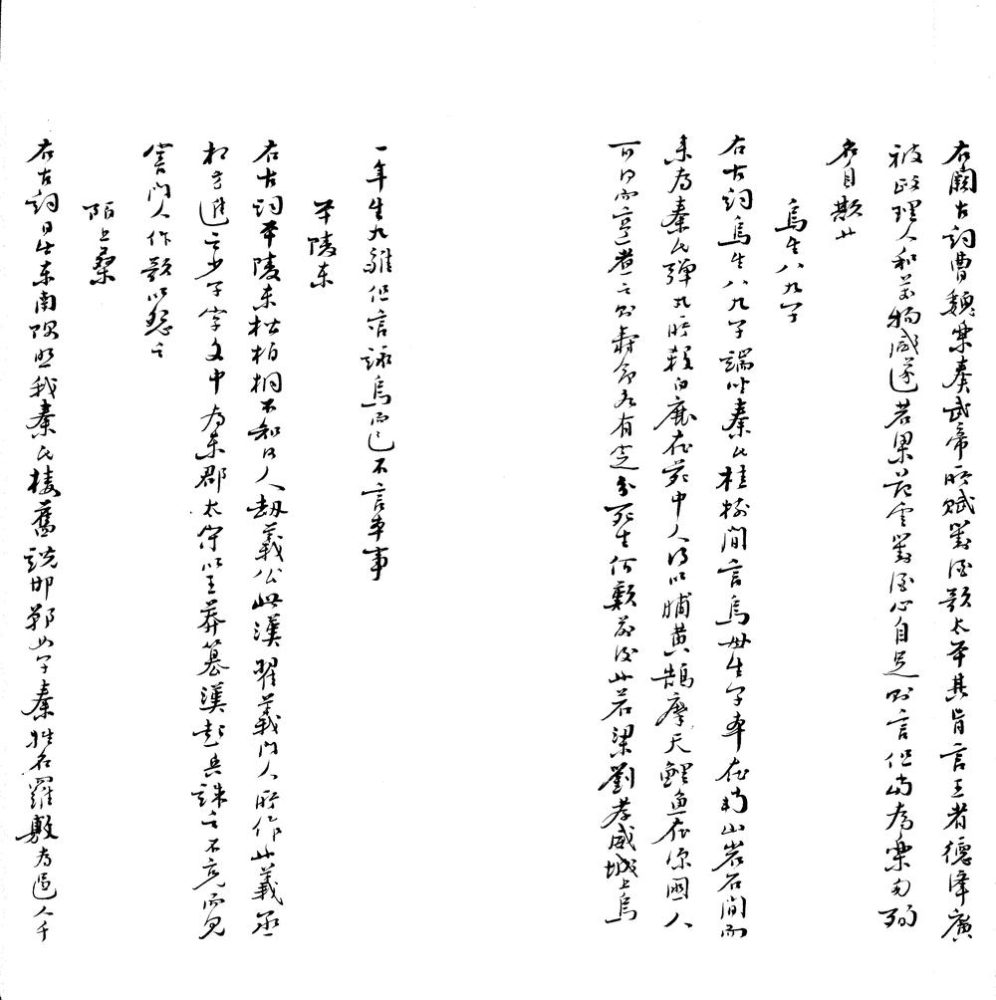 右闕古詞曹魏樂奏武帝所賦對酒歌太平其旨言王者德澤廣
被政理人和萬物咸遂若梁范雲對酒心自足則言但當為樂勿
名自欺也
烏生八九子
右古詞烏生八九子端坐秦氏桂樹間言烏母生子本在南山岩石間而
來為秦氏彈丸所殺白鹿在苑中人得以脯黃鵠摩天鯉魚在深國人
可得而烹煮之則壽命各有定分死生何歎前後也若梁劉孝威城上烏
一年生九雛但言詠烏而已不言本事
平陵東
右古詞平陵東松柏桐不知何人劫義公此漢翟義門人所作也義丞
相方進之少子字文中為東郡太守以王莽篡漢起兵誅之不克而見
害門人作歌以怨之
陌上桑
右古詞日出東南隅照我秦氏樓舊說邯鄲女子秦姓名羅敷為邑人千